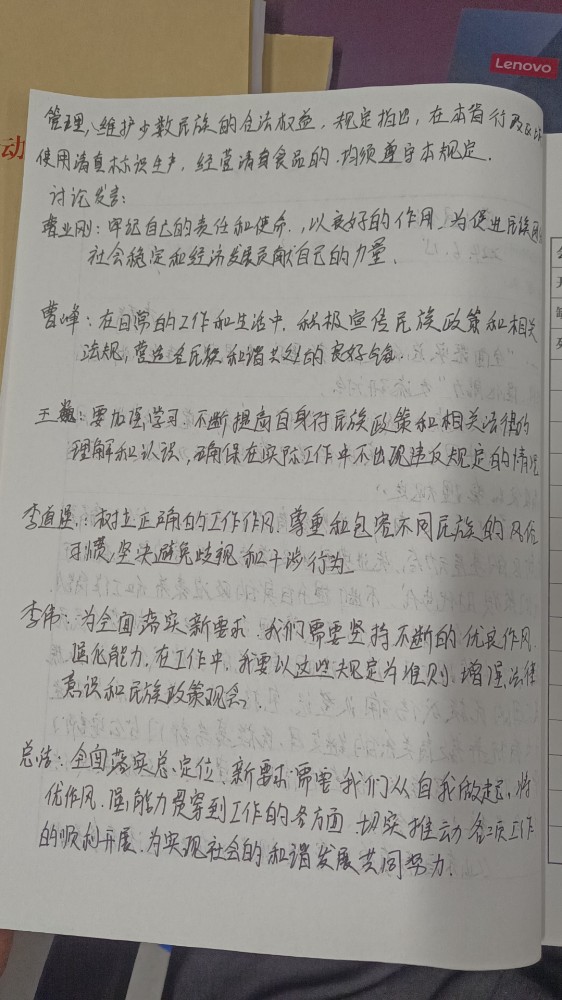 Lenovo
动
管理,维护少数民族的合法权益,规定指出,在本省行政区
使用清真标识生产,经营清真食品的,均须遵守本规定.
讨论发言:
曹业刚:牢记自己的责任和使命,以良好的作用,为促进民族团
社会稳定和经济发展贡献自己的力量.
曹峰:在日常的工作和生活中,积极宣传民族政策和相关
法规,营造各民族和谐共处的良好
王巍:要加强学习,不断提高自身对民族政策和相关法律的
理解和认识,确保在实际工作中不出现违反规定的情况
李道:树立正确的工作作风,尊重和包容不同民族的风俗
习惯,坚决避免歧视和干涉行为.
李伟:为全面落实新要求,我们需要坚持不断的优良作风,
强化能力,在工作中,我要以这些规定为准则,增强法律
意识和民族政策观念.
总结:全面落实总定位,新要求需要我们从自我做起,将
优作风,强能力贯穿到工作的各方面,切实推动各项工作
的顺利开展,为实现社会的和谐发展共同努力.